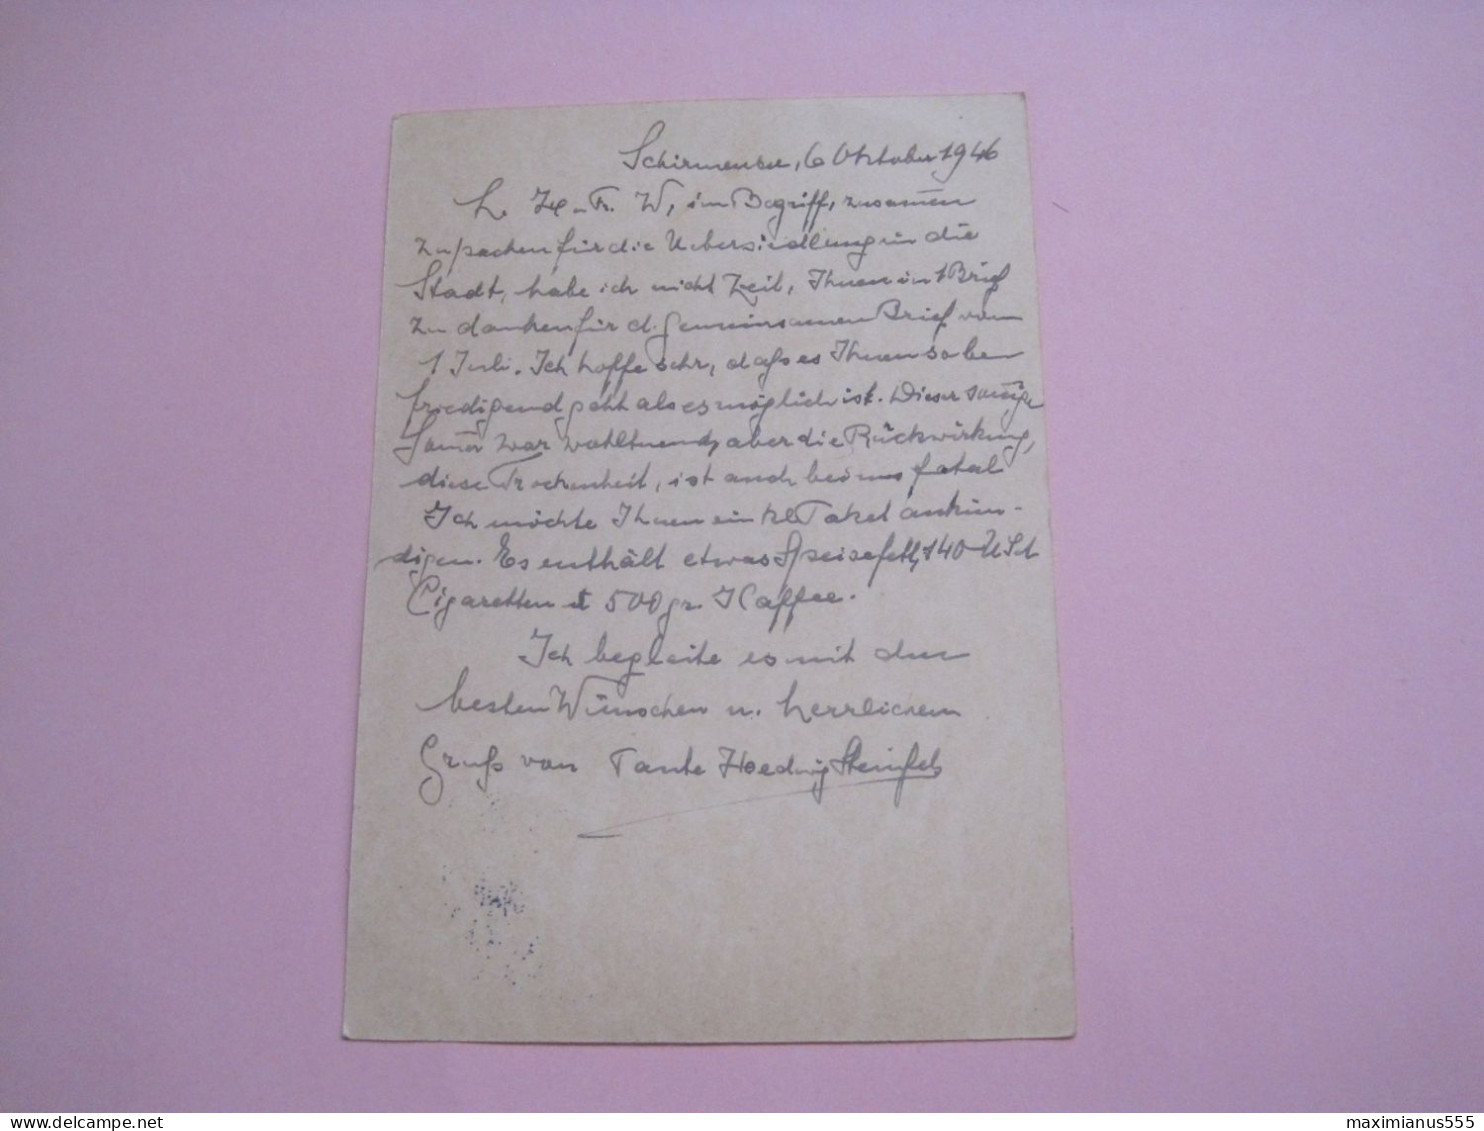 Schirmensee, 6 Oktober 1946
L. H. u. Fr. W, im Begriff, zusam̅en
zu packen für die Uebersiedlung in die
Stadt, habe ich nicht Zeit, Ihnen in 1 Brief
zu danken für d. gemeinsamen Brief vom
1 Juli. Ich hoffe sehr, dass es Ihnen so be
friedigend geht als es möglich ist. Dieser son̅ige
Som̅er war wohltuend, aber die Rückwirkung,
diese Trockenheit, ist auch bei uns fatal
Ich möchte Ihnen ein kl Paket ankün-
digen. Es enthält etwas Speisefett, 140 USA
Cigaretten & 500 gr. Kaffee.
Ich begleite es mit den
besten Wünschen u. herzlichem
Gruß von Tante Hedwig Steinfels
maximianus555